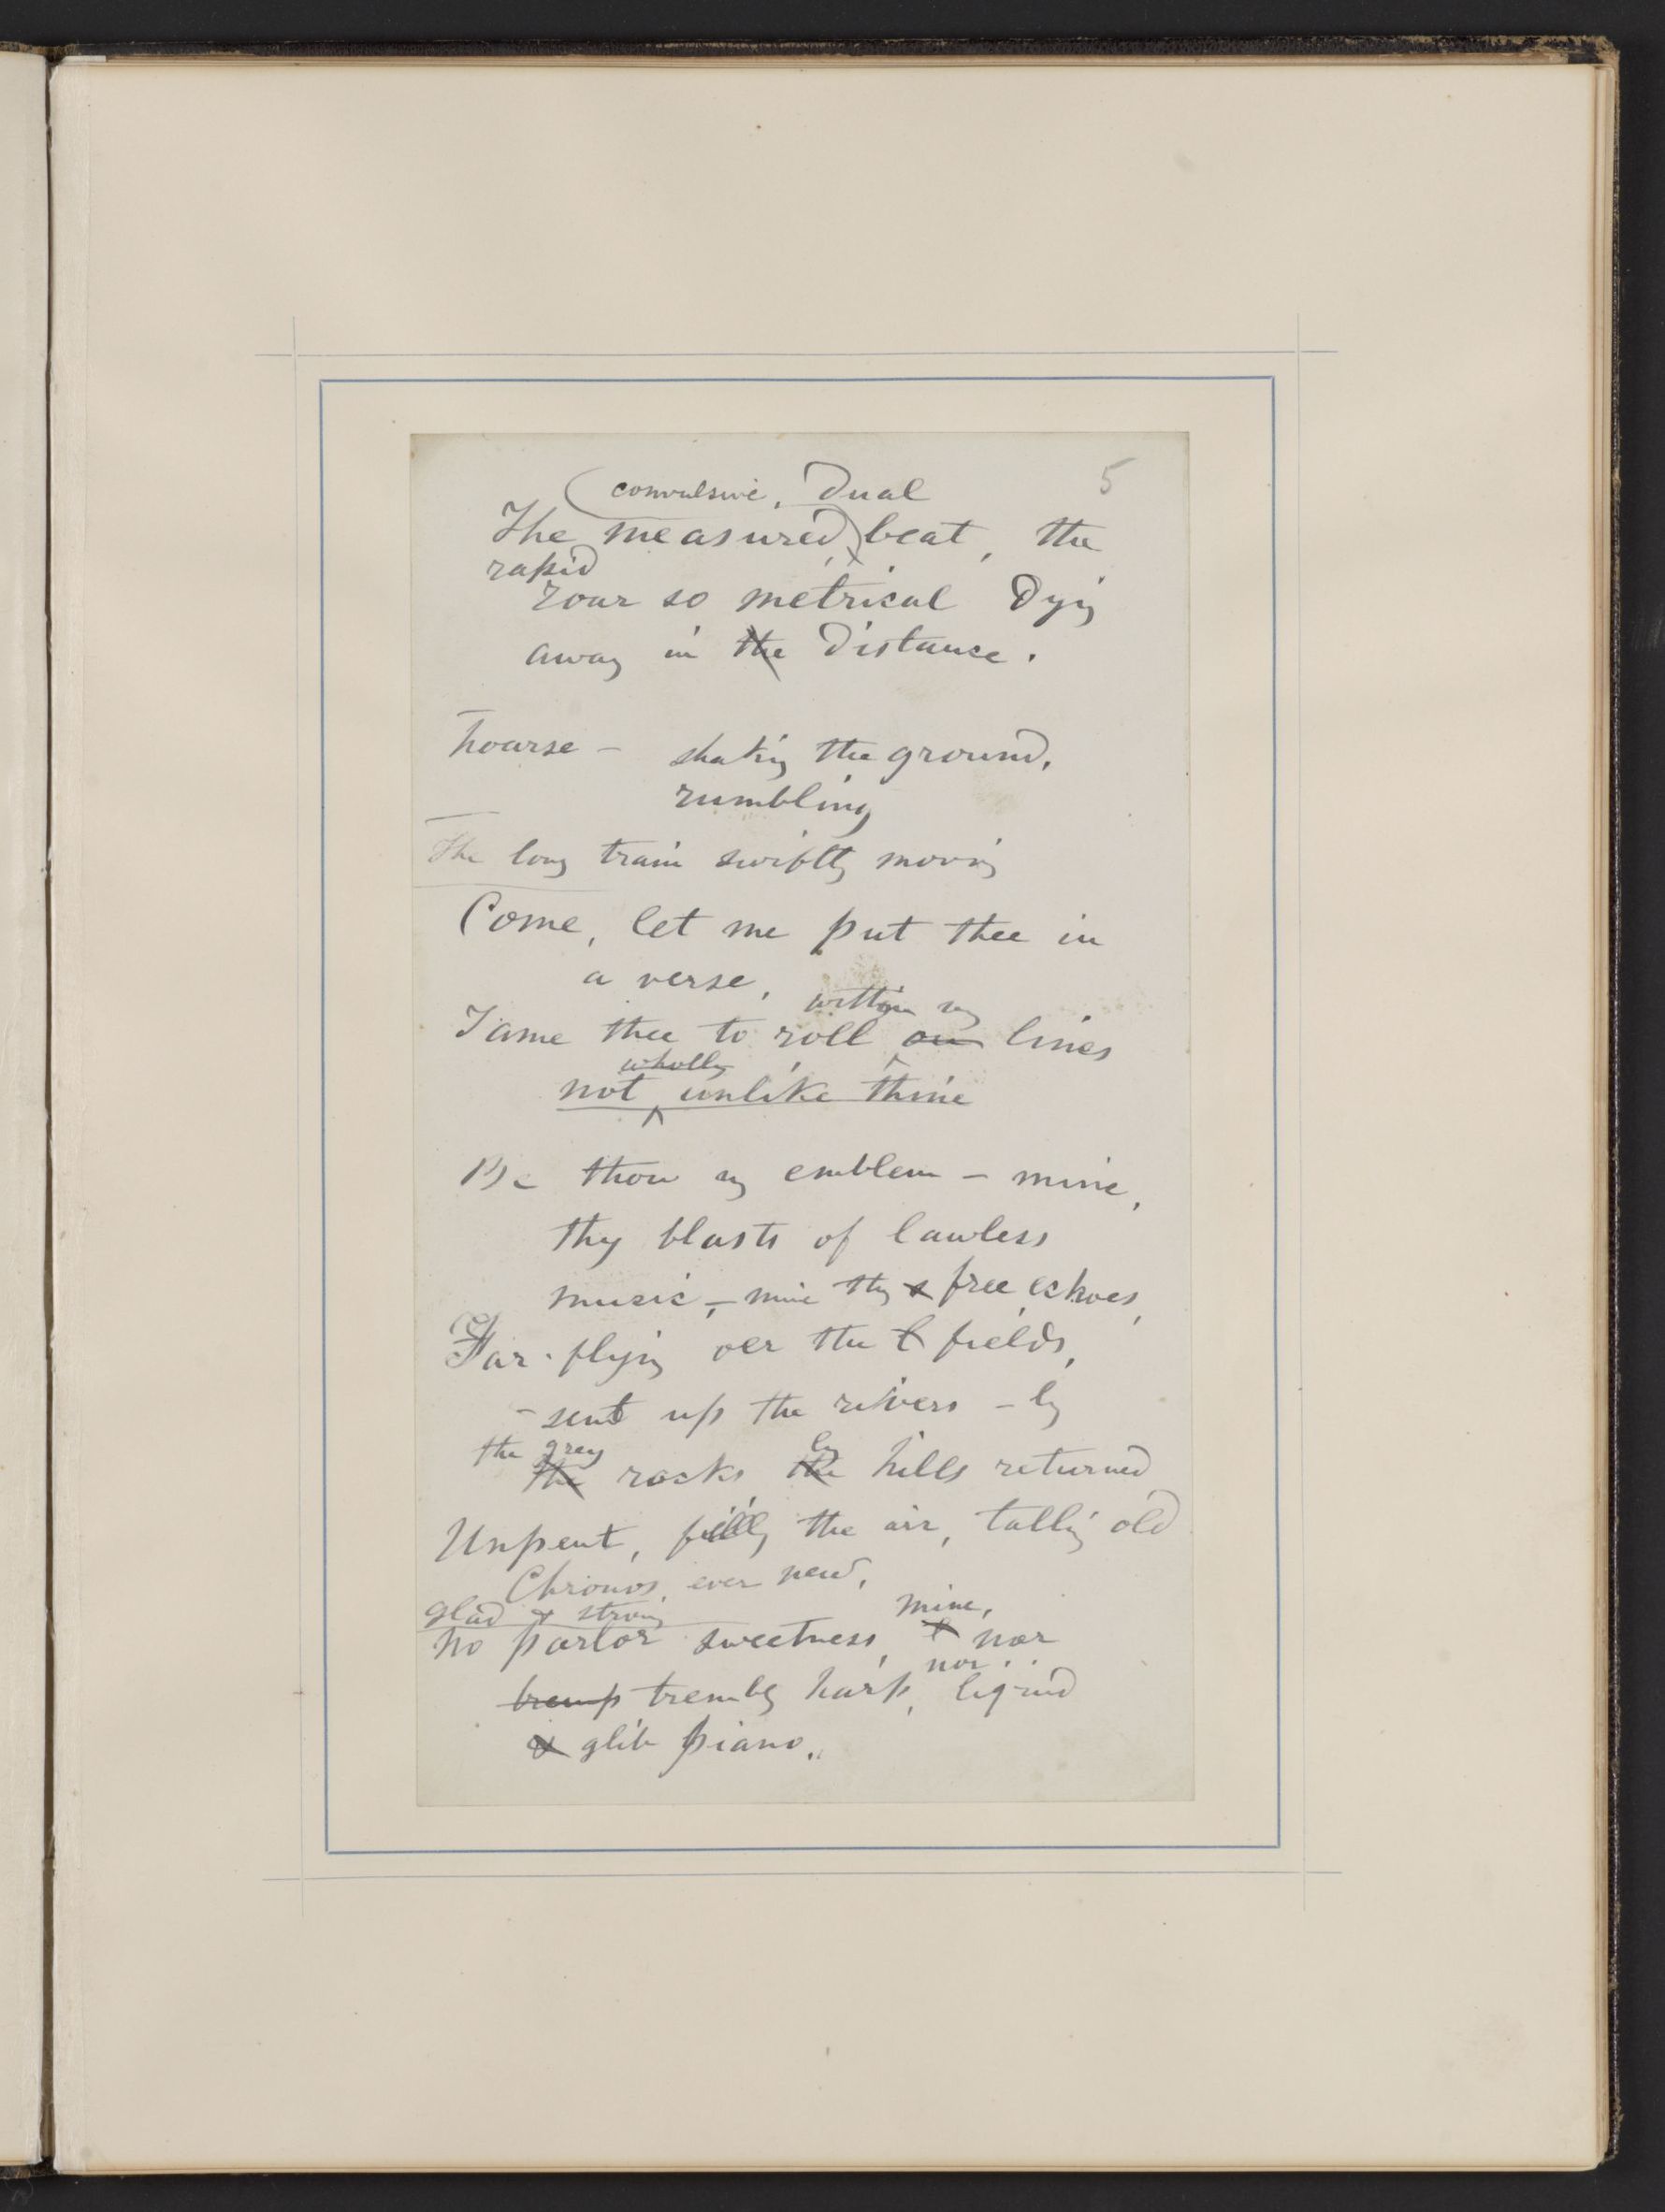 5
convulsive, dual
The measured, beat, the
rapid
roar so metrical dying
away in the distance.
hoarse – shaking the ground,
rumbling
The long train swiftly moving
Come, let me put thee in
a verse,
within my
Tame thee to roll on lines
wholly
not unlike thine
Be thou my emblem – mine,
thy blasts of lawless
music, – mine thy free echoes,
Far-flying oer the fields,
– sent up the rivers – by
the grey by
the rocks the hills returned
Unpent, filling the air, tallying old
Chronos, ever new,
glad & strong mine,
No parlor sweetness, nor
nor
tremp trembling harp, liquid
& glib piano.